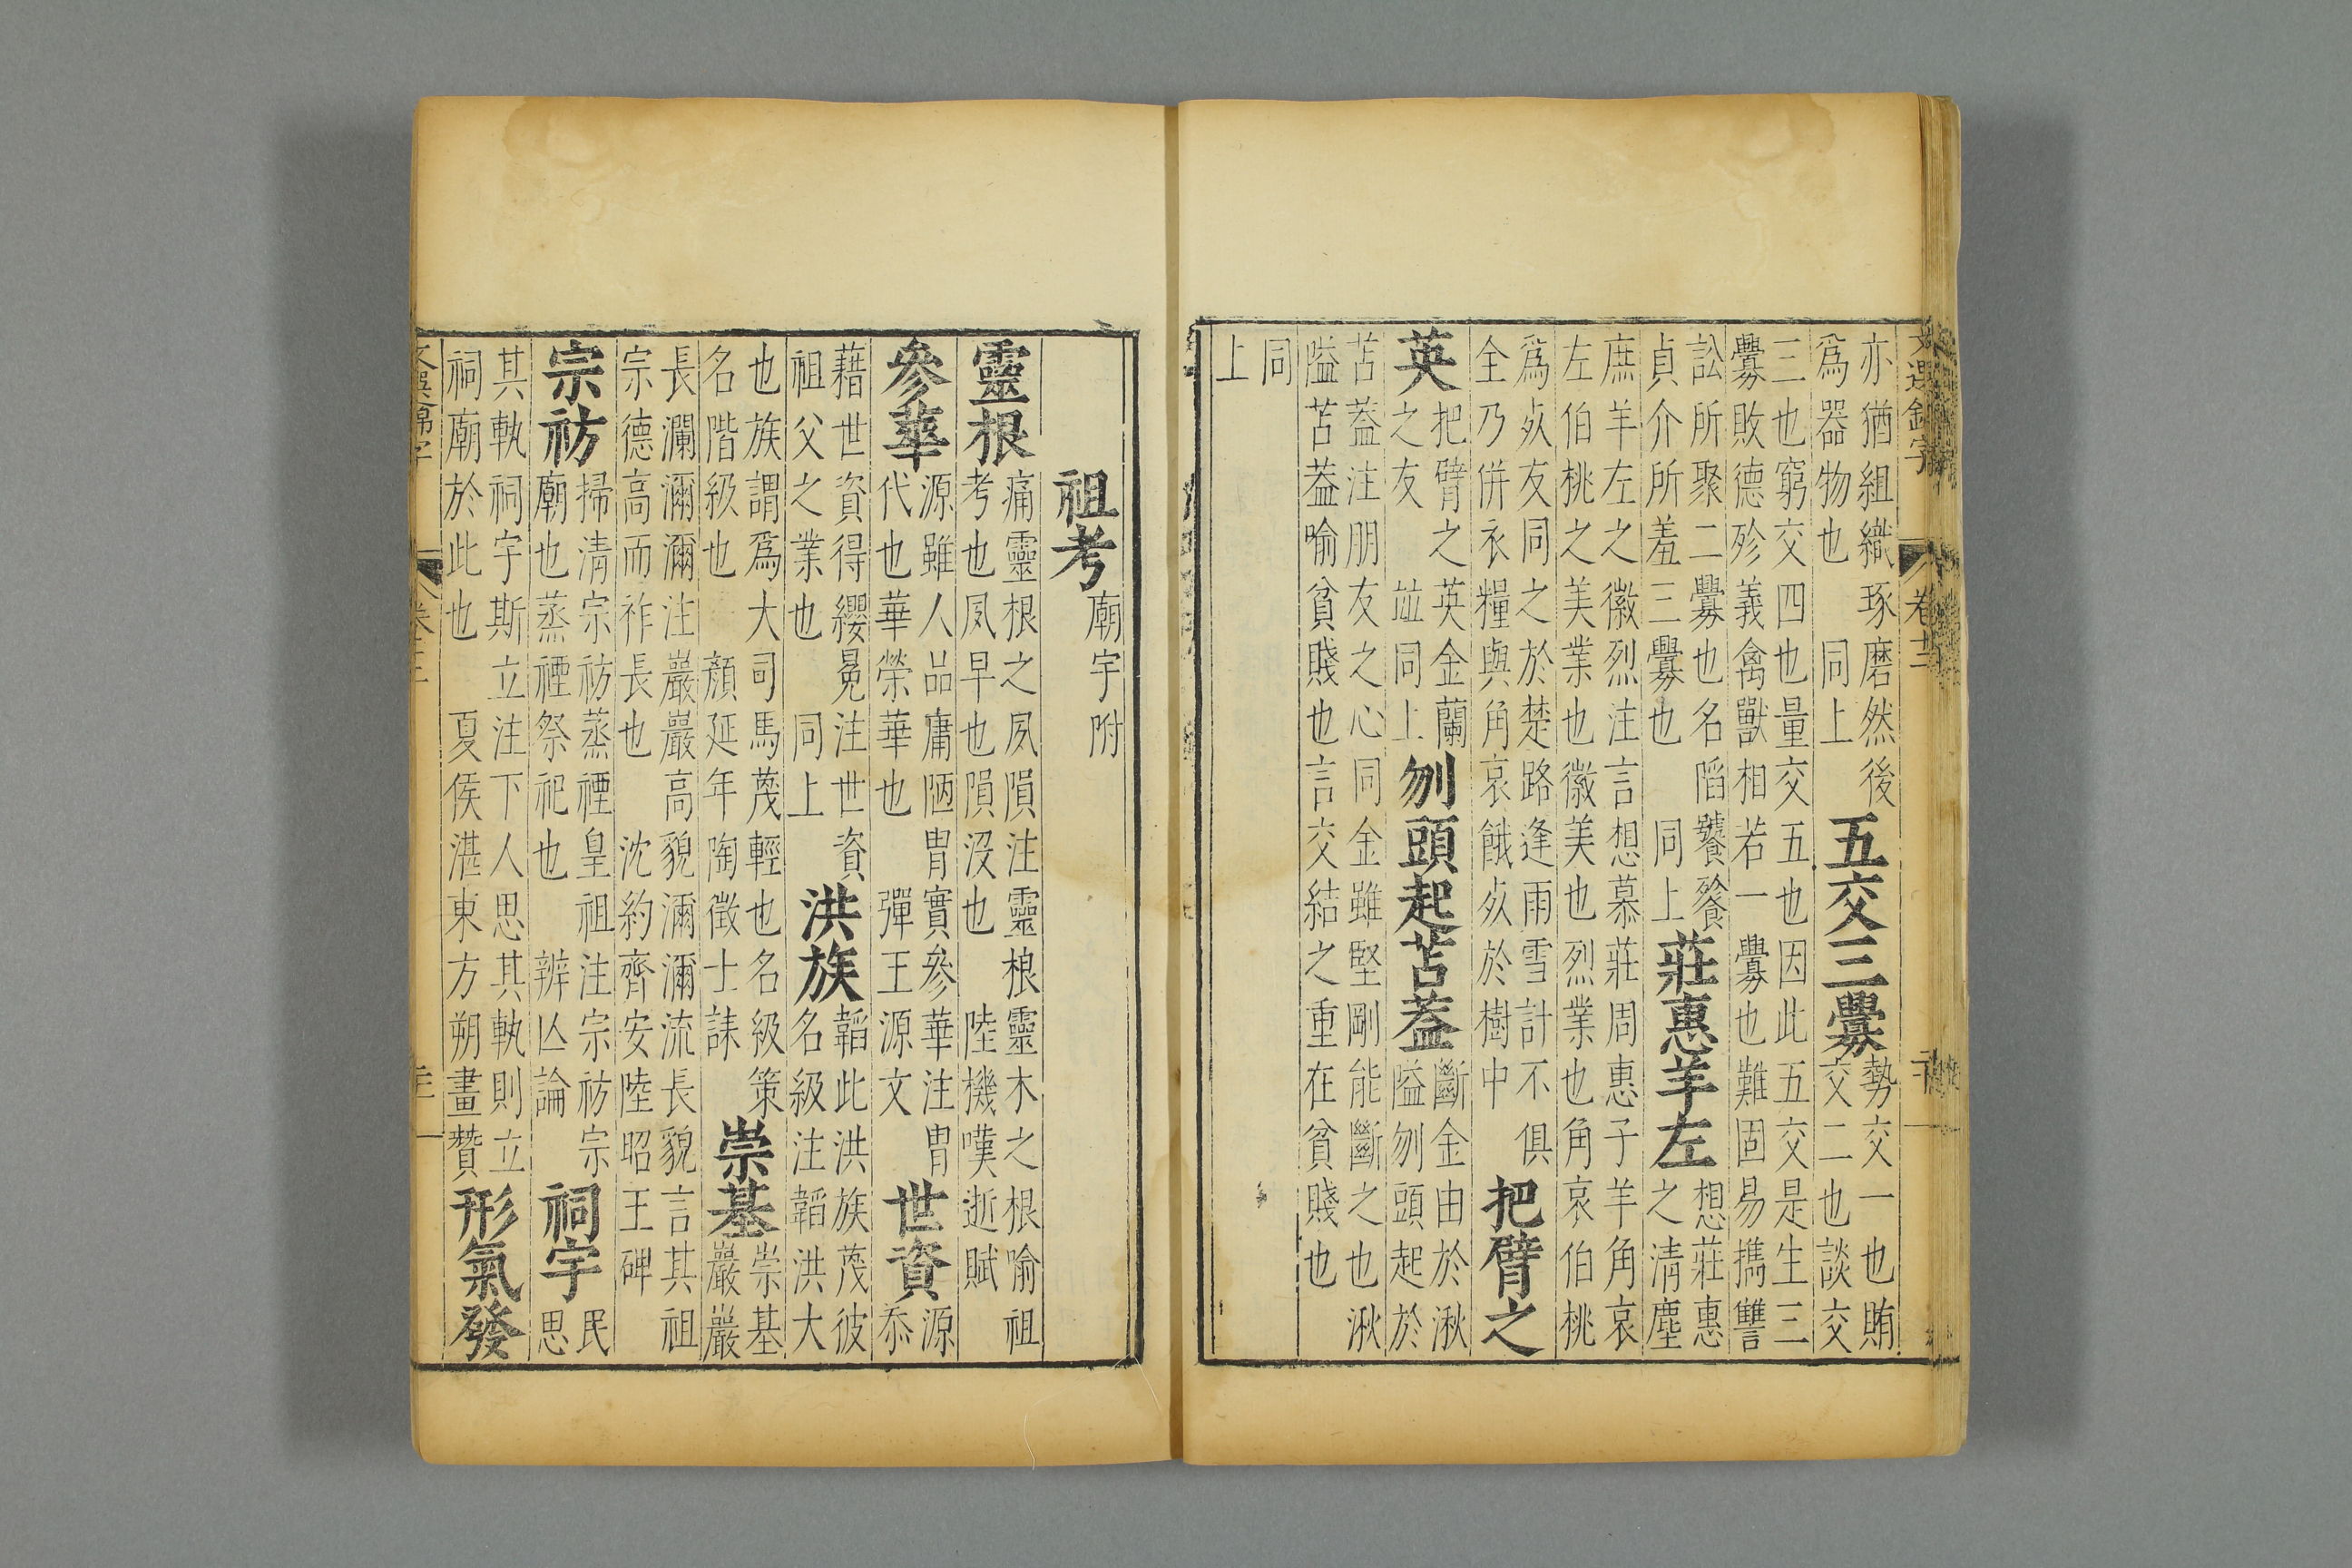 文選錦字 卷十二 二十
亦猶組織琢磨然後
爲器物也 同上
五交三釁
勢交一也賄
交二也談交
三也窮交四也量交五也因此五交是生三
釁敗德殄義禽獸相若一釁也難固易攜讐
訟所聚二釁也名陷饕餮
貞介所羞三釁也 同上
莊惠羊左
想莊惠
之清塵
庶羊左之徽烈注言想慕莊周惠子羊角哀
左伯桃之美業也徽美也烈業也角哀伯桃
爲死友同之於楚路逢雨雪計不俱
全乃併衣糧與角哀餓死於樹中
把臂之
英
把臂之英金蘭
之友 並同上
刎頭起苫蓋
斷金由於湫
隘刎頭起於
苫蓋注朋友之心同金雖堅剛能斷之也湫
隘苫葢喻貧賤也言交結之重在貧賤也
同
上
祖考
廟宇附
靈根
痛靈根之夙隕注靈根靈木之根喻祖
考也夙早也隕沒也 陸機嘆逝賦
參華
源雖人品庸陋胄實參華注胄
代也華榮華也 彈王源文
世資
源
忝
藉世資得纓冕注世資
祖父之業也 同上
洪族
韜此洪族茂彼
名級注韜洪大
也族謂爲大司馬蔑輕也名級策
名階級也 顏延年陶徵士誄
崇基
崇基
巖巖
長瀾瀰瀰注巖巖高貌瀰瀰流長貌言其祖
宗德高而祚長也 沈約齊安陸昭王碑
宗祊
掃清宗祊蒸禋皇祖注宗祊宗
廟也蒸禋祭祀也 辨亾論
祠宇
民
思
其軌祠宇斯立注下人思其軌則立
祠廟於此也 夏侯湛東方朔畫贊
形氣發